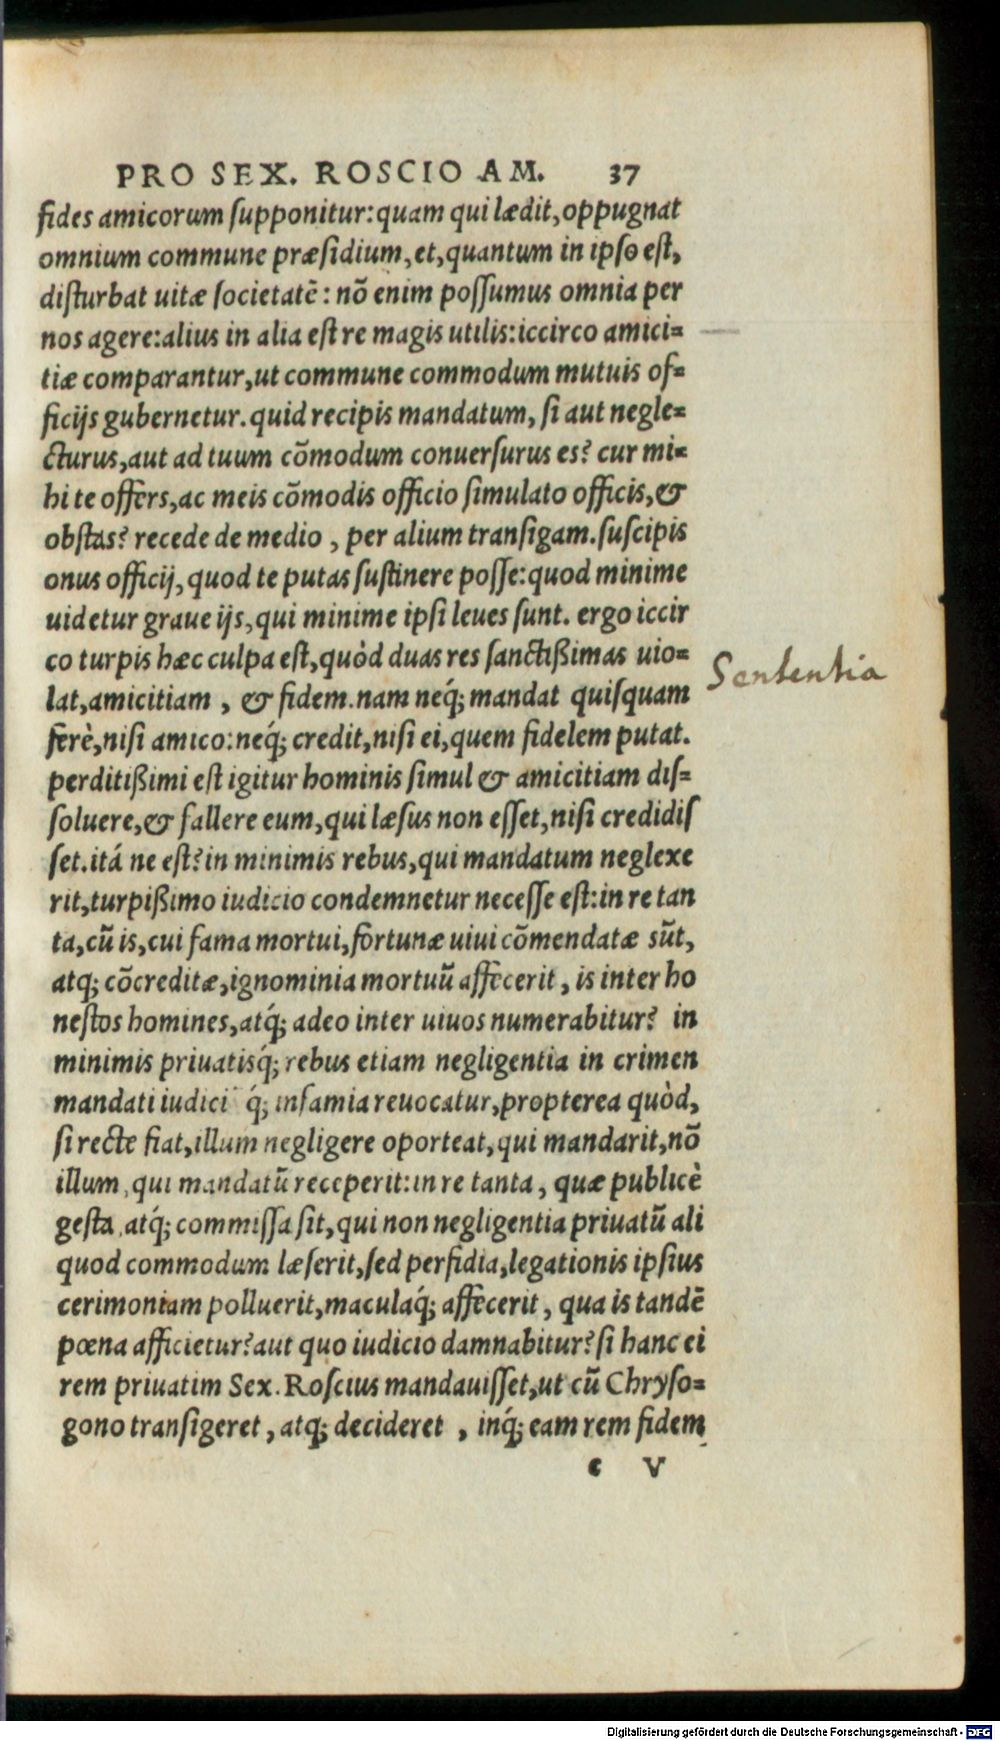 PRO SEX. ROSCIO AM. 37
fides amicorum ſupponitur: quam qui lædit, oppugnat
omnium commune præſidium, et, quantum in ipſo eſt,
diſturbat uitæ ſocietatē: nō enim poſſumus omnia per
nos agere: alius in alia eſt re magis utilis: iccirco amici=
tiæ comparantur, ut commune commodum mutuis of=
ficijs gubernetur. quid recipis mandatum, ſi aut negle=
cturus, aut ad tuum cōmodum conuerſurus es? cur mi=
hi te offers, ac meis cōmodis officio ſimulato officis, &
obſtas? recede de medio, per alium tranſigam. ſuſcipis
onus officij, quod te putas ſuſtinere poſſe: quod minime
uidetur graue ijs, qui minime ipſi leues ſunt. ergo iccir
co turpis hæc culpa eſt, quòd duas res ſanctißimas uio=
Sententia
lat, amicitiam, & fidem. nam neq́; mandat quiſquam
ferè, niſi amico: neq́; credit, niſi ei, quem fidelem putat.
perditißimi eſt igitur hominis ſimul & amicitiam diſ=
ſoluere, & fallere eum, qui læſus non eſſet, niſi credidiſ
ſet. itá ne eſt? in minimis rebus, qui mandatum neglexe
rit, turpißimo iudicio condemnetur neceſſe eſt: in re tan
ta, cū is, cui fama mortui, fortunæ uiui cōmendatæ sūt,
atq; cōcreditæ, ignominia mortuū affecerit, is inter ho
neſtos homines, atq́; adeo inter uiuos numerabitur? in
minimis priuatisq́; rebus etiam negligentia in crimen
mandati iudici q́; infamia reuocatur, propterea quòd,
ſi recte fiat, illum negligere oporteat, qui mandarit, nō
illum, qui mandatū receperit: in re tanta, quæ publicè
geſta, atq́; commiſſa ſit, qui non negligentia priuatū ali
quod commodum læſerit, ſed perfidia, legationis ipſius
cerimoniam polluerit, maculaq́; affecerit, qua is tandē
pœna afficietur? aut quo iudicio damnabitur? ſi hanc ei
rem priuatim Sex. Roſcius mandauiſſet, ut cū Chryſo=
gono tranſigeret, atq; decideret, inq́; eam rem fidem
c V
Digitalisierung gefördert durch die Deutsche Forschungsgemeinschaft - DFG